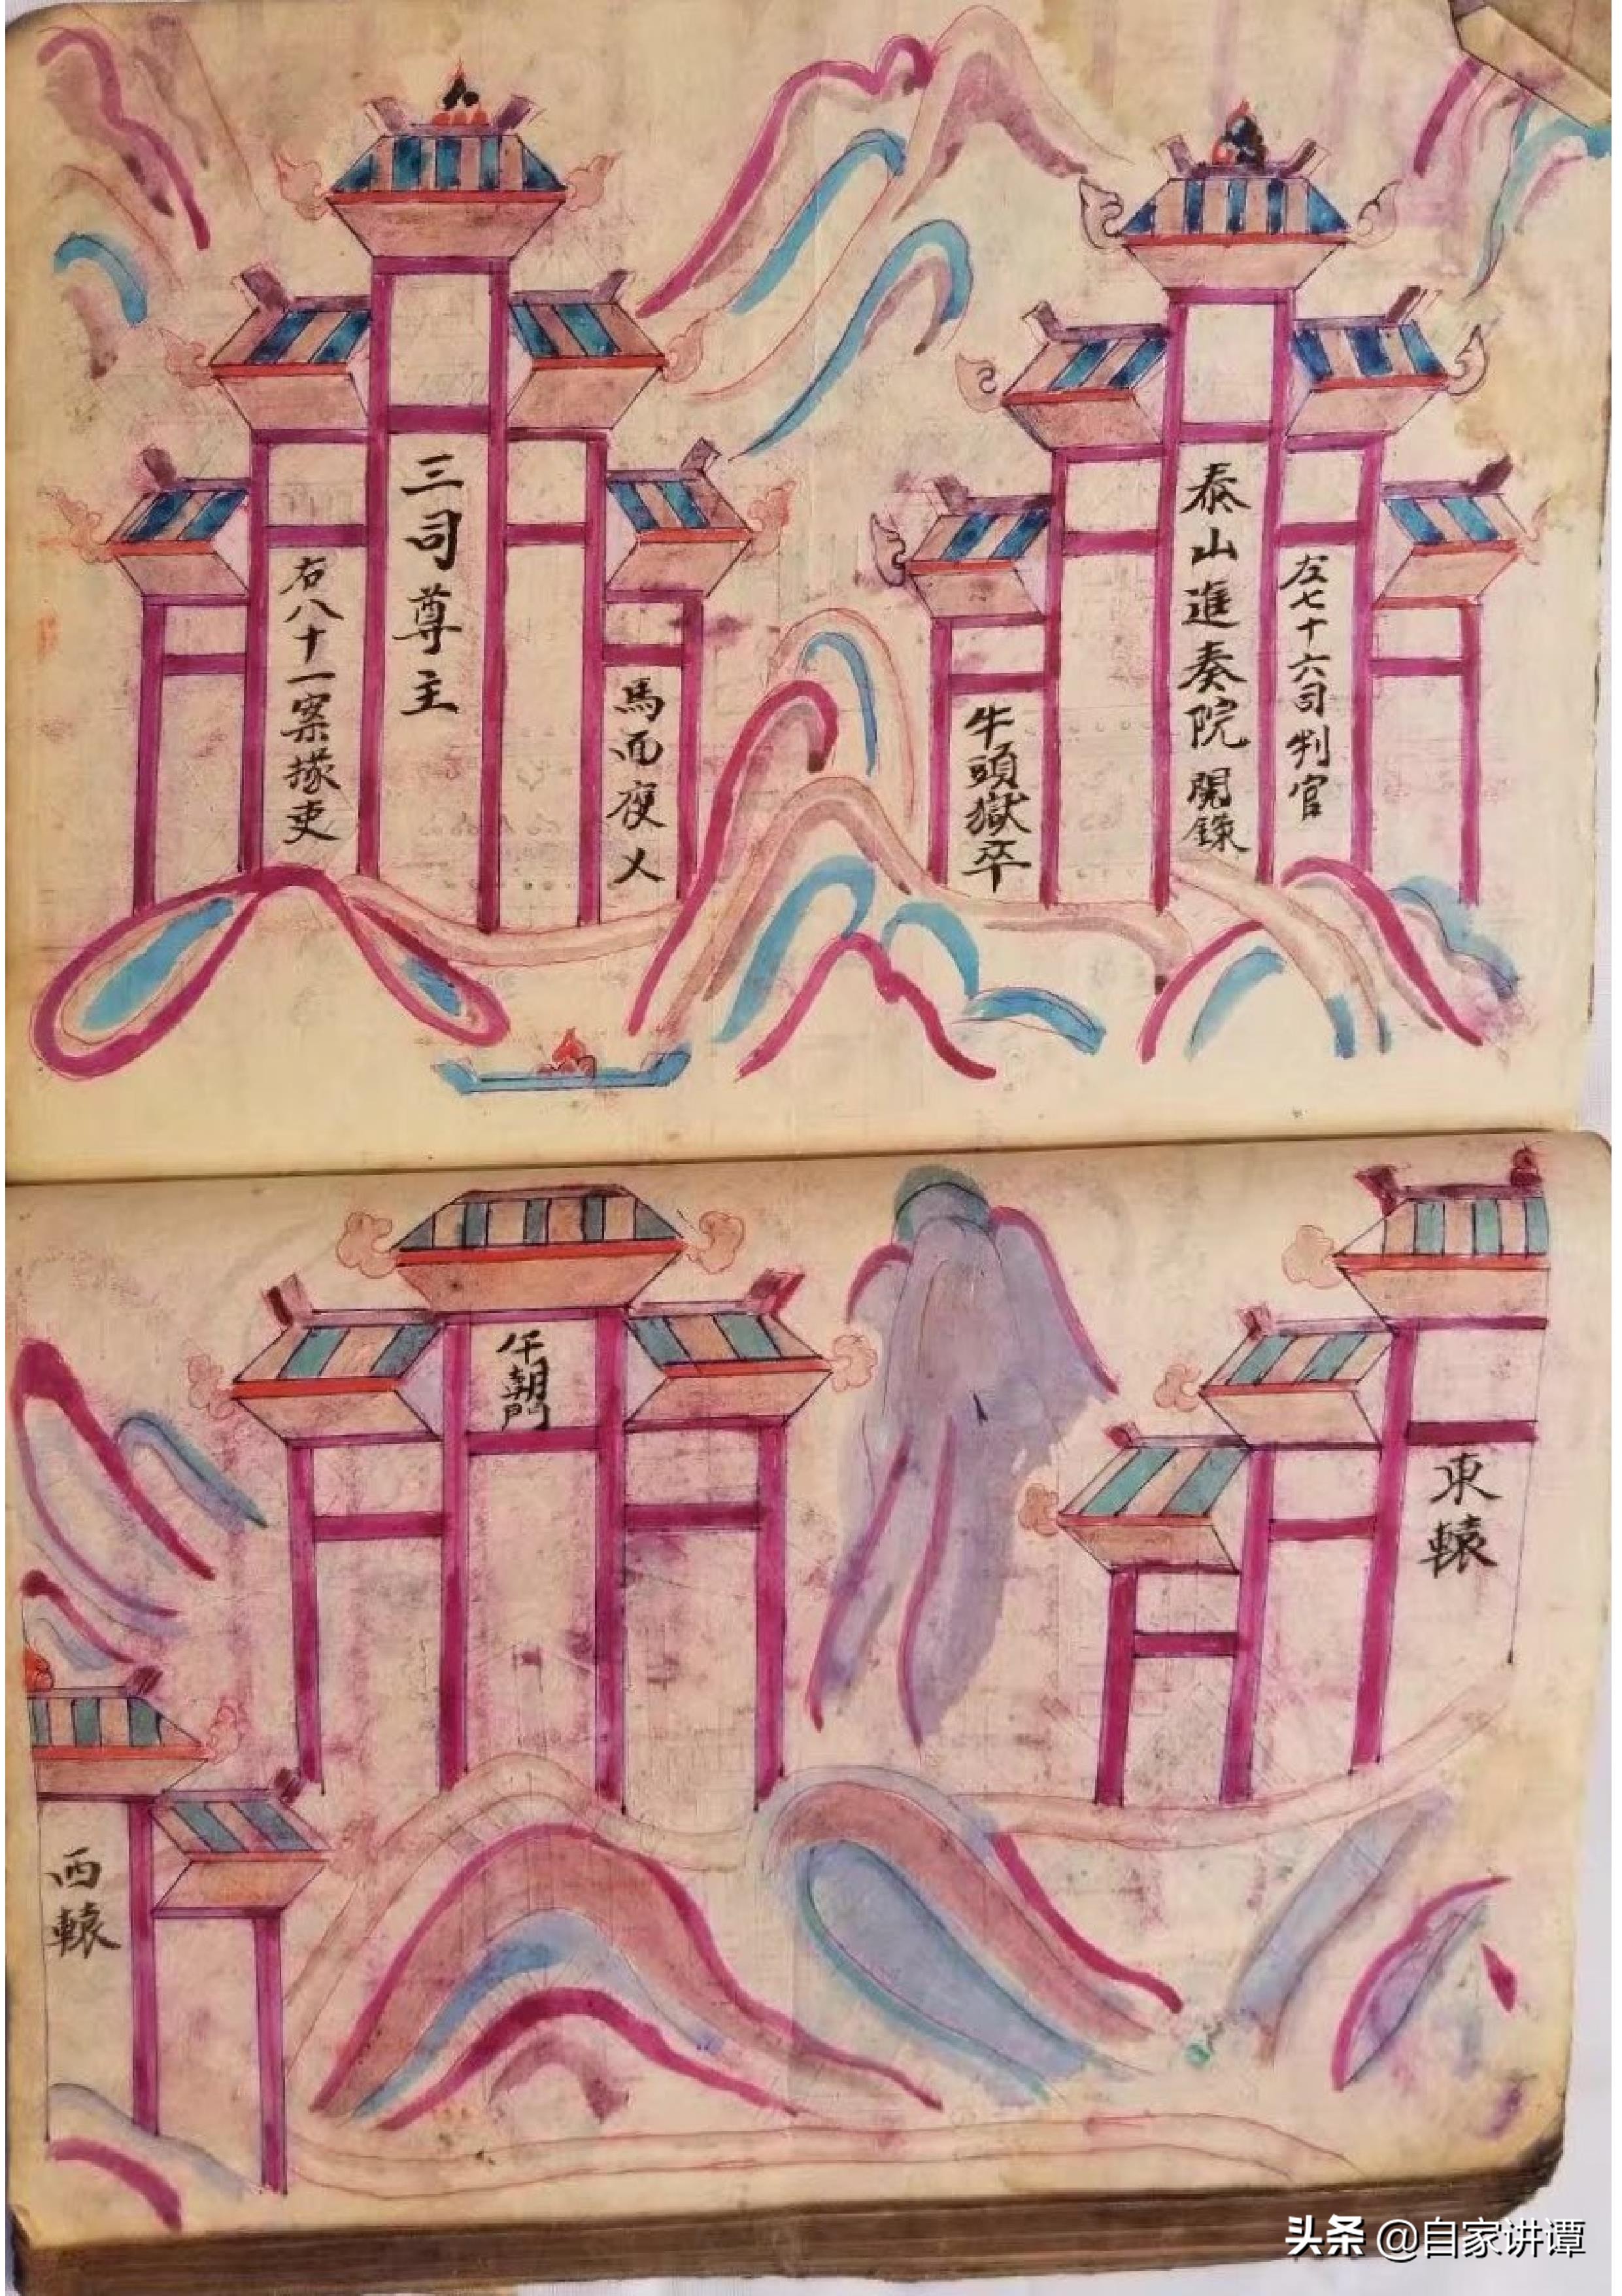 左七十六司判官
泰山進奏院 閱錄
牛頭獄卒
馬面夜乂
三司尊主
右八十一案掾吏
東轅
午朝門
西轅
头条 @自家讲谭